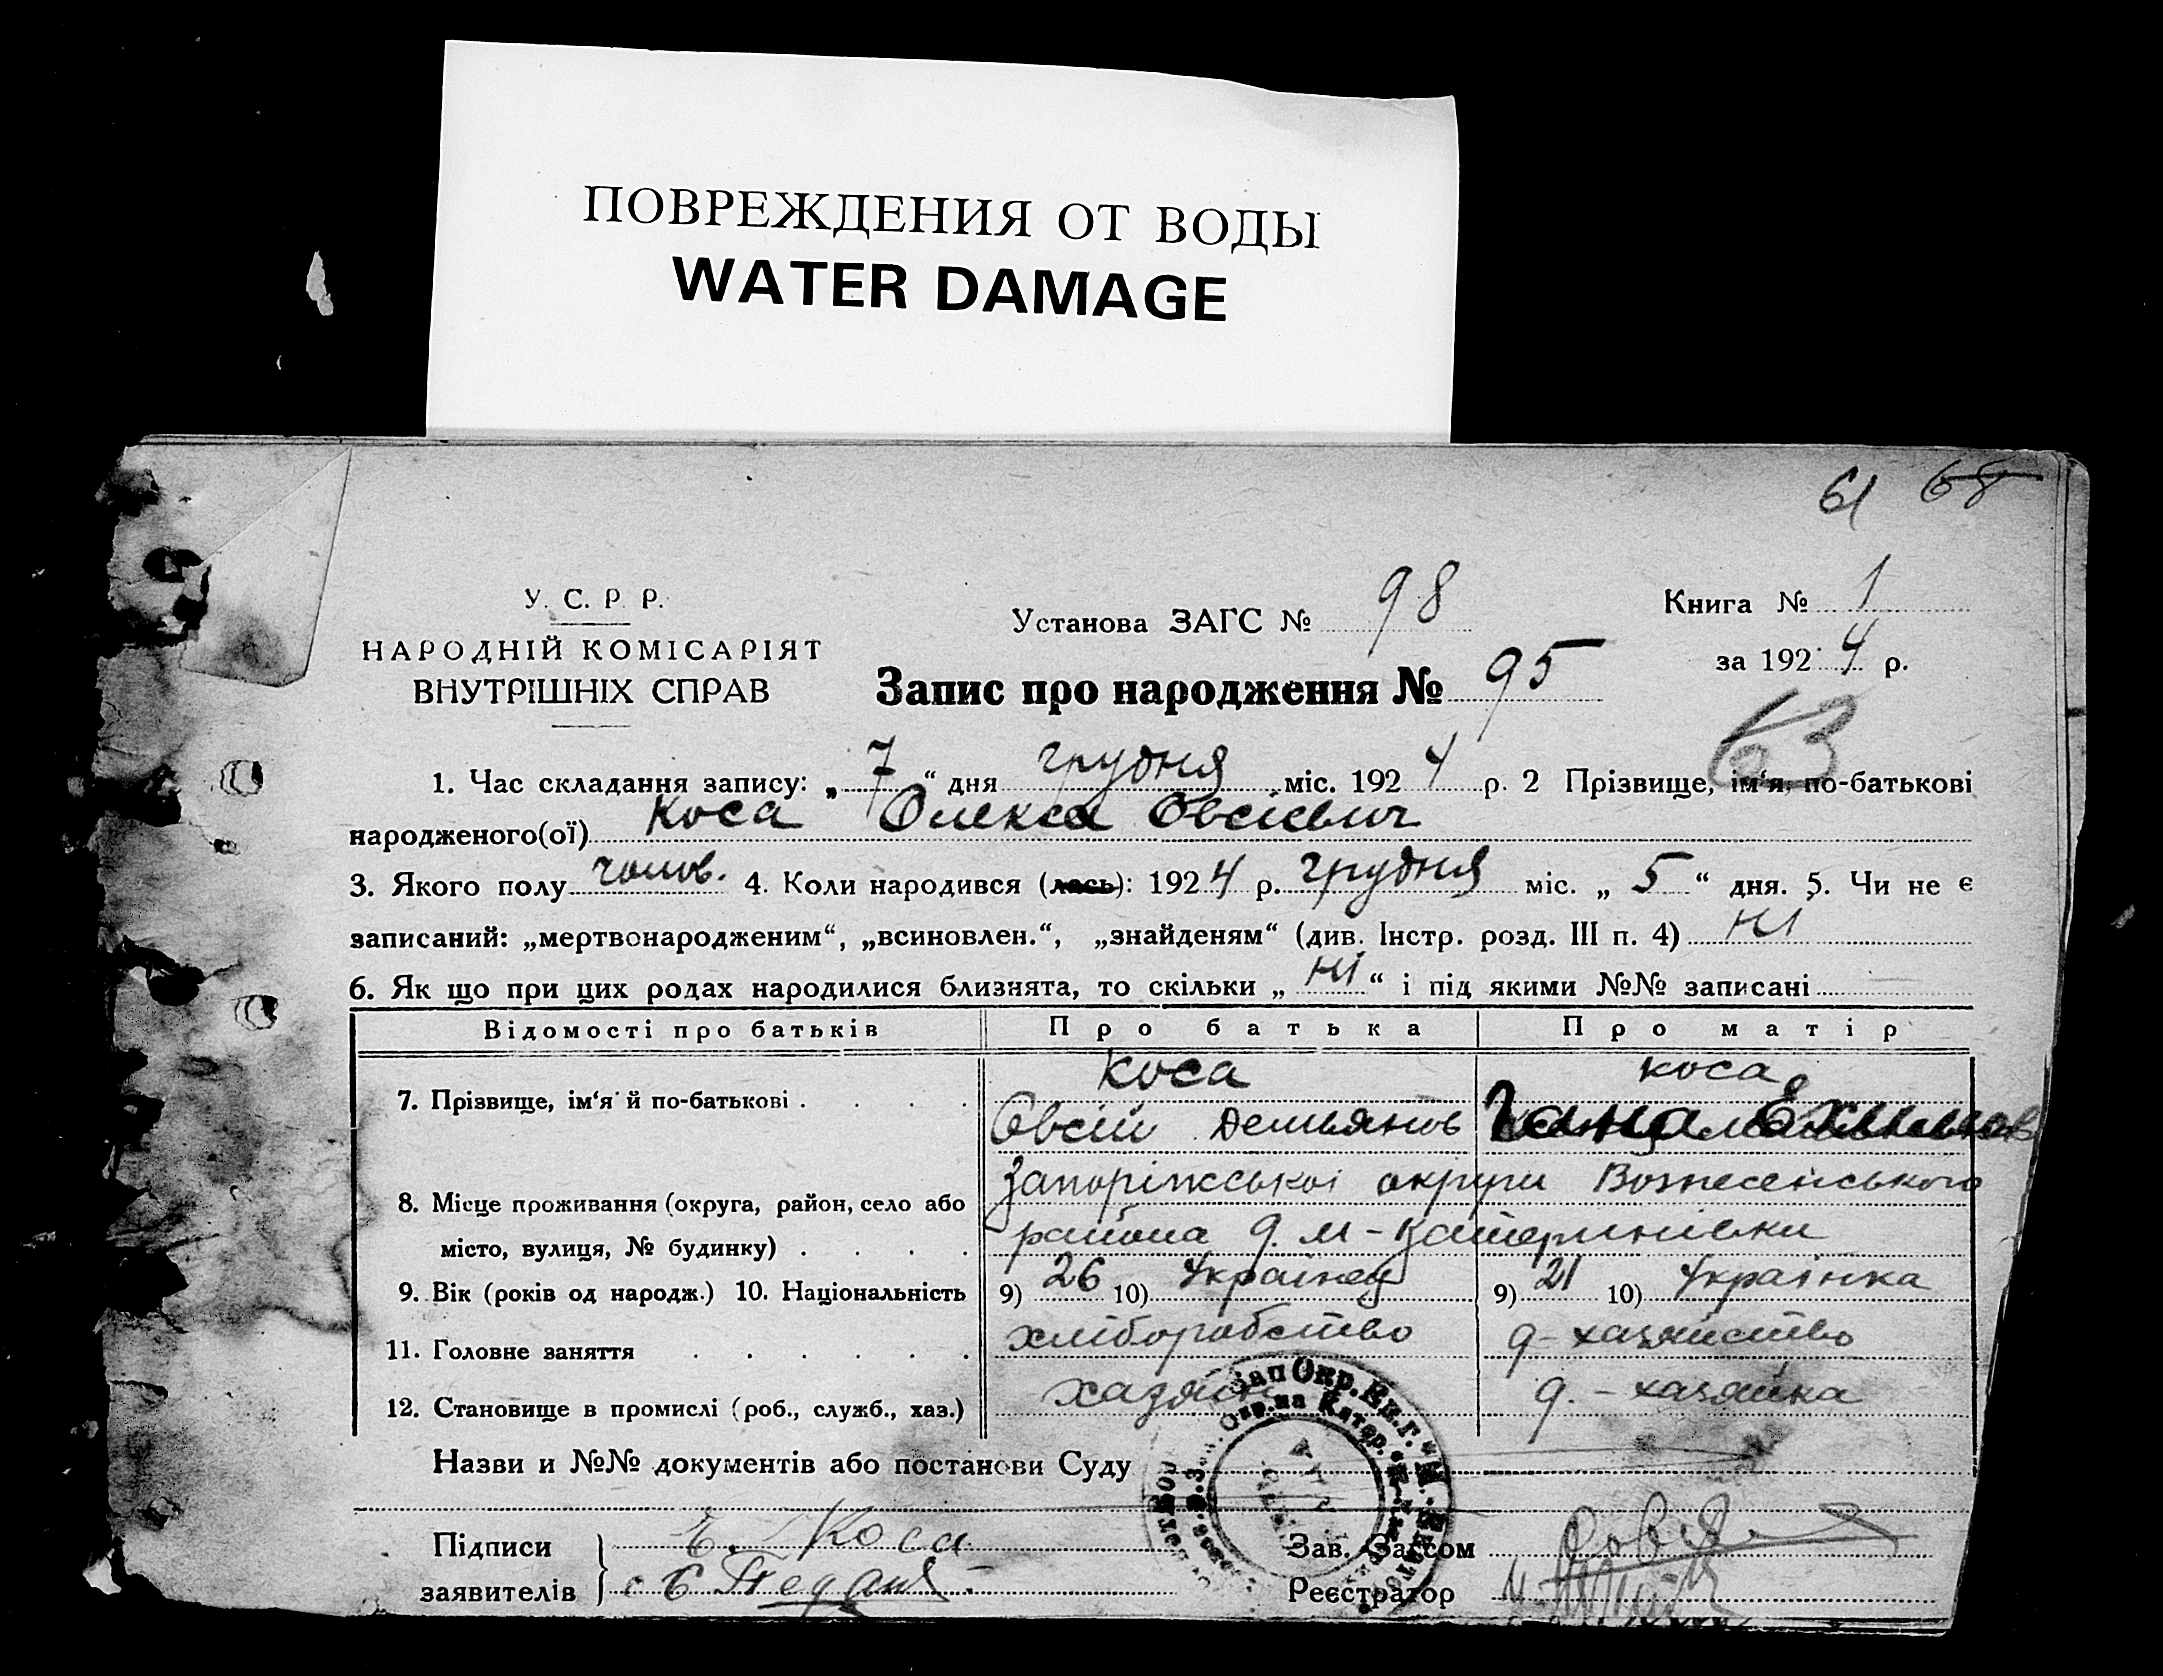 ПОВРЕЖДЕНИЯ ОТ ВОДЫ
WATER DAMAGE
61 68
У. С. Р. Р.
НАРОДНІЙ КОМІСАРІЯТ
ВНУТРІШНІХ СПРАВ
Установа ЗАГС № 98
Книга № 1
за 1924 р.
Запис про народження № 95
63
1. Час складання запису: „7“ дня грудня міс. 1924 р. 2 Прізвище, ім‘я, по-батькові
народженого(ої) Коса Олекса Овсієвич
3. Якого полу чолов. 4. Коли народився (лась): 1924 р. грудня міс. „5“ дня. 5. Чи не є
записаний: „мертвонародженим“, „всиновлен.“, „знайденям“ (див. Інстр. розд. III п. 4) ні
6. Як що при цих родах народилися близнята, то скільки „ні“ і під якими №№ записані
Відомості про батьків Про батька Про матір
7. Прізвище, ім‘я й по-батькові . . . . Коса Коса
Овсій Демьянов Ганна
8. Місце проживання (округа, район, село або Запоріжської округи Вознесенського
місто, вулиця, № будинку) . . . . района д. м-Катеринівки
9. Вік (років од народж.) 10. Національність 9) 26 10) Українец 9) 21 10) Українка
11. Головне заняття . . . . . . хліборобство д-хазяйство
12. Становище в промислі (роб., служб., хаз.) хазяїн д.-хазяйка
Назви и №№ документів або постанови Суду
Підписи Е. Коса Зав. Загсом
заявителів Реєстратор